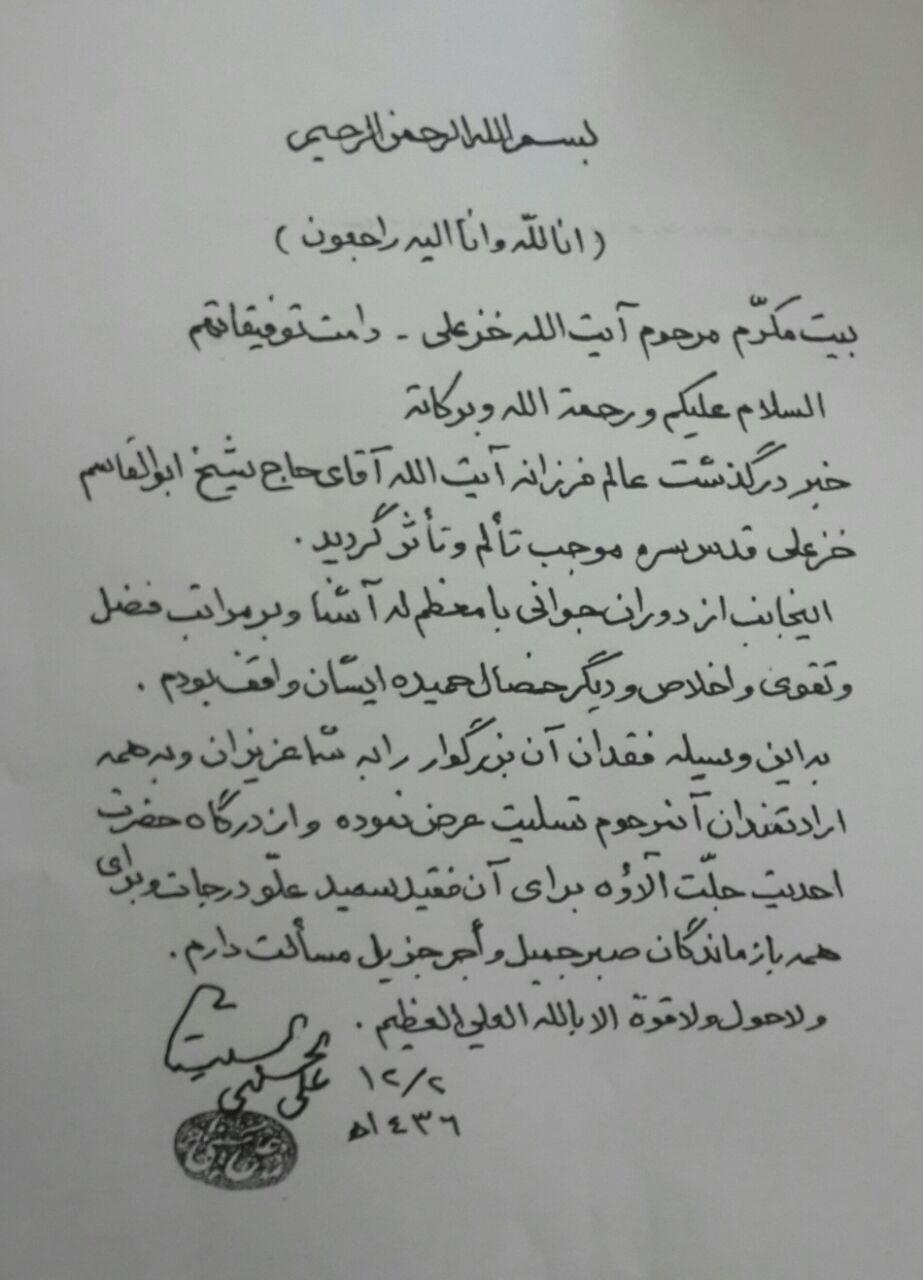 بسم الله الرحمن الرحیم
(انا للّه وانا الیه راجعون)
بیت مکرّم مرحوم آیت الله خزعلی - دامت توفیقاتهم
السلام علیکم ورحمة الله وبرکاته
خبر درگذشت عالم فرزانه آیت الله آقای حاج شیخ ابوالقاسم
خزعلی قدس سره موجب تألم وتأثر گردید.
اینجانب از دوران جوانی با معظم له آشنا وبر مراتب فضل
وتقوی واخلاص ودیگر خصال حمیده ایشان واقف بودم.
به این وسیله فقدان آن بزرگوار را به شما عزیزان وبه همه
ارادتمندان آنمرحوم تسلیت عرض نموده واز درگاه حضرت
احدیت جلّت آلاؤه برای آن فقید سعید علوّ درجات وبرای
همه بازماندگان صبر جمیل وأجر جزیل مسألت دارم.
ولا حول ولا قوة الا بالله العلی العظیم.
علی الحسینی السیستانی
١٢/٢
١٤٣٦ه